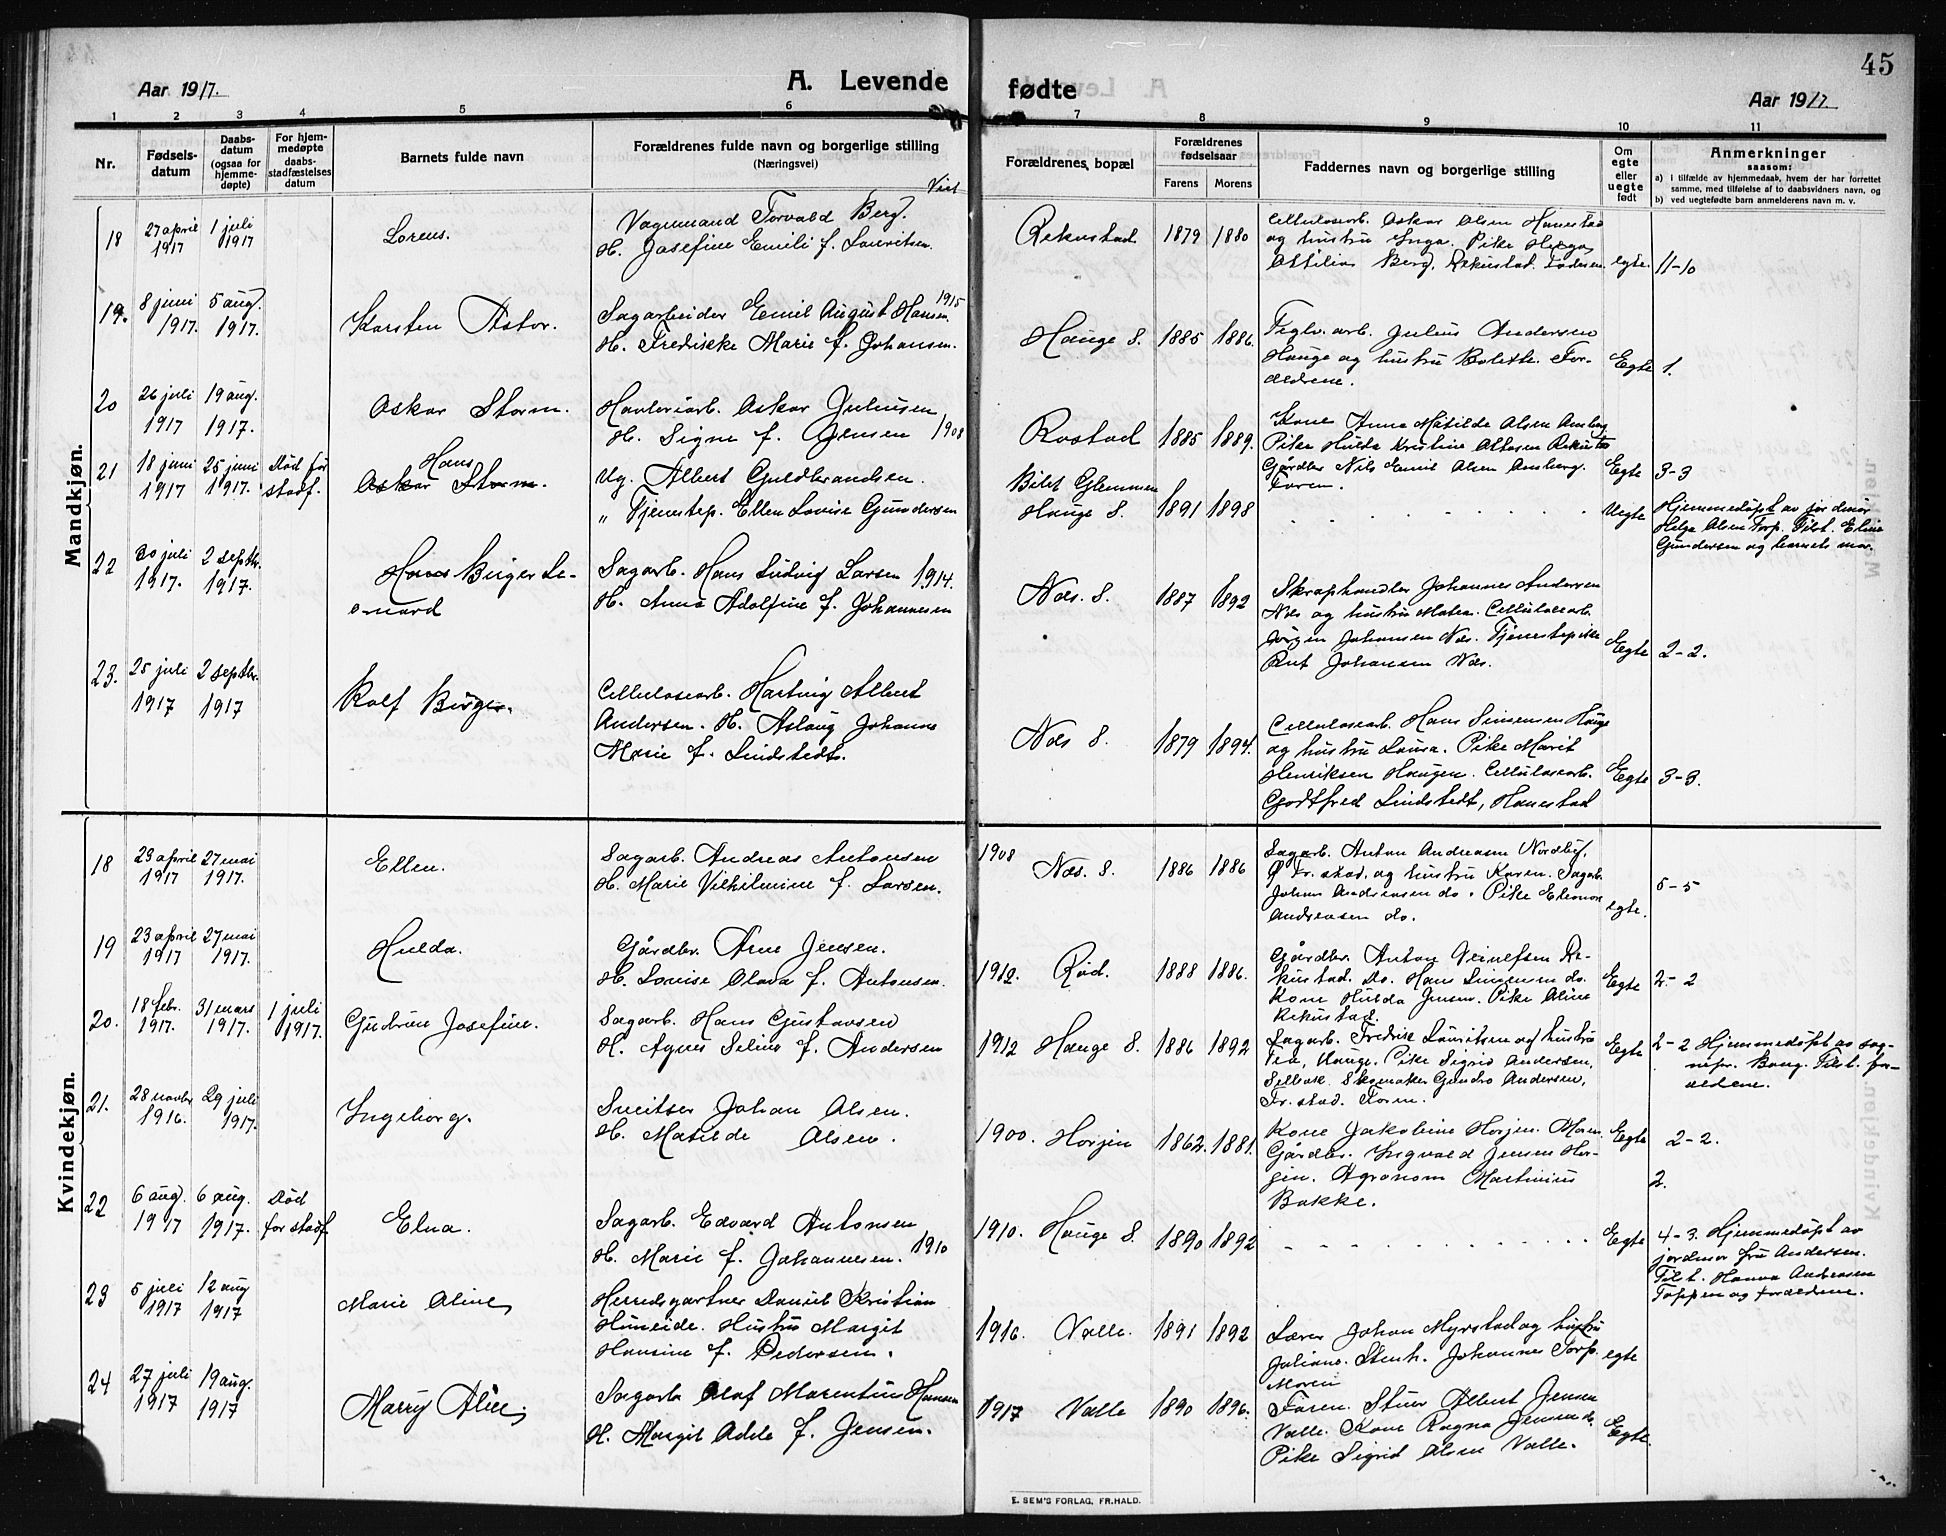 45
Aar 1917.
A. Levende
fødte
Aar 1917.
1 2 3 4 5 6 7 8 9 10 11
Nr.
Fødsels-
datum
Daabs-
datum
(ogsaa for
hjemme-
døpte)
For hjem-
medøpte
daabs-
stadfæstelses
datum
Barnets fulde navn
Forældrenes fulde navn og borgerlige stilling
(Næringsvei)
Viet
Forældrenes bopæl
Forældrenes
fødselsaar
Farens Morens
Faddernes navn og borgerlige stilling
Om
egte
eller
uegte
født
Anmerkninger
saasom:
a) i tilfælde av hjemmedaab, hvem der har forrettet
samme, med tilføielse af to daabsvidners navn, og
b) ved uegtefødte barn anmelderens navn m. v.
Mandkjøn.
18
27 april
1917
1 juli
1917
Lorens.
Vognmand Torvald Berg.
H. Josefine Emili f. Lauritsen.
Rekustad
1879 1880
Cellulosearb. Oskar Olsen Hanestad
og hustru Inga. Pike Helga
Ottilia Berg, Rekustad. Faderen.
egte.
11-10
19.
8 juni
1917.
5 aug.
1917.
Karsten Astor.
Sagarbeider Emil August Hansen. 1915
H. Fredrikke Marie f. Johansen.
Hauge S.
1885 1886.
Teglv. arb. Julius Andersen
Hauge og hustru Bolette. For-
ældrene.
Egte
1.
20
26 juli
1917
19 aug.
1917.
Oskar Storm.
Havneiarb. Oskar Juliusen
H. Signe f. Jensen 1908
Rostad
1885 1889.
Kone Anna Matilde Olsen
Pike Hulda Kristine Ottosen
Gårdbr. Nils Emil Olsen
Faren.
Egte
3-3
21
18 juni
1917
25 juni
1917.
Død før
stadf.
Hans
Oskar Storm.
Ug. Albert Guldbrandsen.
" Tjenestep. Ellen Lovise Gundersen
Glemmen
Hauge S.
1891 1898
Uegte
Hjemmedøpt av jordmor
Helga Olsen Torp. Tilst. Eline
Gundersen og barnets mor.
22
30 juli
1917.
2 septbr.
1917.
Hans Birger Le-
onard
Sagarb. Hans Ludvig Larsen 1914.
H. Anna Adolfine f. Johannesen
Næs. S.
1887 1892
Skraphandler Johannes Andersen
Næs og hustru Matea. Cellulosearb.
Jørgen Johansen Næs. Tjenestepike
Rut Johansen Næs.
Egte
2-2.
23.
25 juli
1917
2 septbr.
1917
Rolf Birger.
Cellulosearb. Hartvig Albert
Andersen. H. Aslaug Johanne
Marie f. Lindstedt.
Næs S.
1879 1894.
Cellulosearb. Hans Simensen Hauge
og hustru Laura. Pike Marit
Henriksen Haugen. Cellulosearb.
Godtfred Lindstedt, Hanestad
Egte
3-3.
Kvindekjøn.
18
23 april
1917
27 mai
1917.
Ellen.
Sagarb. Andreas Antonsen
H. Marie Vilhilmine f. Larsen.
1908
Næs. S.
1886 1886
Sagarb. Anton Andreasen Nordby,
Fr. stad. og hustru Karen. Sagarb.
Johan Andreasen do. Pike Eleonora
Andreasen do.
egte.
5-5
19
23 april
1917
27 mai
1917.
Hulda.
Gårdbr. Arne Jensen.
H. Lovise Olava f. Antonsen.
1912.
Rød.
1888 1886.
Gårdbr. Anton Re-
kustad. Do. Hans Simensen do.
Kone Hulda Jensen. Pike Aline
Rekustad.
Egte
2-2
20.
18 febr.
1917.
31 mars
1917.
1 juli
1917.
Gudrun Josefine.
Sagarb. Hans Gustavsen
H. Agnes Selina f. Andersen
1912
Hauge S.
1886 1892
Sagarb. Fredrik Lauritsen og hustru
Tea, Hauge. Pike Sigrid Andersen,
Selbak. Skomaker Andersen,
Fr. stad. Faren.
Egte
2-2 Hjemmedøpt av sog-
nepr. Bang. Tilst. for-
ældrene.
21.
28 novbr
1916.
29 juli
1917.
Ingeborg.
Sveitser Johan Olsen.
H. Matilde Olsen.
1900.
Horjen
1862. 1881.
Kone Jakobine Horjen. Moren.
Gårdbr. Ingvald Jensen Hor-
jen. Agronom Martinius
Bakke.
Egte
2-2.
2.
22
6 aug.
1917
6 aug.
1917.
Død
før stadf.
Elna.
Sagarb. Edvard Antonsen
H. Marie f. Johannesen. 1910
1910.
Hauge S.
1890 1892
Egte
4-3. Hjemmedøpt av
jordmor fru Andersen.
Tilst. Hanna Andreasen
Toppen og forældrene.
23
5 juli
1917
12 aug
1917
Marie Aline
Herredsgartner Daniel Kristian
Huneide. Hustru Margit
Hansine f. Pedersen.
1916.
Valle.
1891 1892
Lærer Johan Myrstad og hustru
Juliane. Stenh. Johannes Torp.
Moren
egte
24
27 juli
1917
19 aug.
1917
Marry Alice.
Sagarb. Olaf Marentin Hansen
H. Margit Adele f. Jensen.
1917
Valle
1890 1896.
Faren. Stuer Albert Jensen
Valle. Kone Ragna Jensen do.
Pike Sigrid Olsen Valle.
Egte.
E. SEM'S FORLAG, FR.HALD.